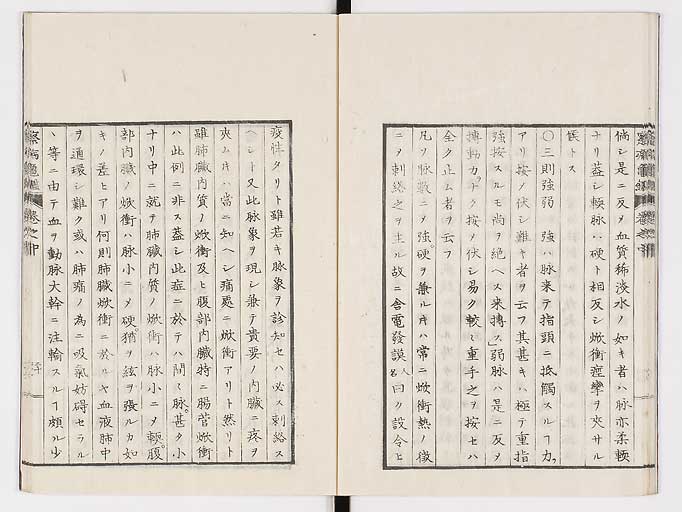 倘シ是ニ反メ血質稀淡水ノ如キ者ハ脉亦柔輭
ナリ蓋シ輭脉ハ硬ト相反シ焮衝痙攣ヲ夾サル
候トス
〇三則強弱 強ハ脉来テ指頭ニ抵觸スルヿ力
アリ按ノ伏シ難キ者ヲ云フ其甚キハ極テ重指
強按スルモ尚ヲ絶ヘス来搏ス」弱脉ハ是ニ反ヲ
搏動力ナク按ノ伏シ易ク較々重手之ヲ按セハ
全ク止ム者ヲ云フ
凡ソ脉数ニメ強硬ヲ兼ルキハ常ニ焮衝熱ノ徴
ニメ刺絡之ヲ主ル故ニ舎電發謨人名曰ク設令ヒ
疫性タリト雖若キ脉象ヲ診知セハ必ス刺絡ス
ヘシト又此脉象ヲ現シ兼テ貴要ノ内臓ニ疼ヲ
夾ムキハ常ニ知ヘシ痛處ニ焮衝アリト然リト
雖肺臓内質ノ焮衝及ヒ腹部内臓特ニ腸管焮衝
ハ此例ニ非ス蓋シ此症ニ於テハ間々脉甚タ小
ナリ中ニ就テ肺臓内質ノ焮衝ハ脉小ニメ輭腹
部内臓ノ焮衝ハ脉小ニメ硬猶ヲ絃ヲ張ルカ如
キノ差ヒアリ何則肺臓焮衝ニ於ルヤ血液肺中
ヲ通環シ難ク或ハ肺痛ノ為ニ吸氣妨碍セラル
丶等ニ由テ血ヲ動脉大幹ニ注輸スルヿ頗ル少